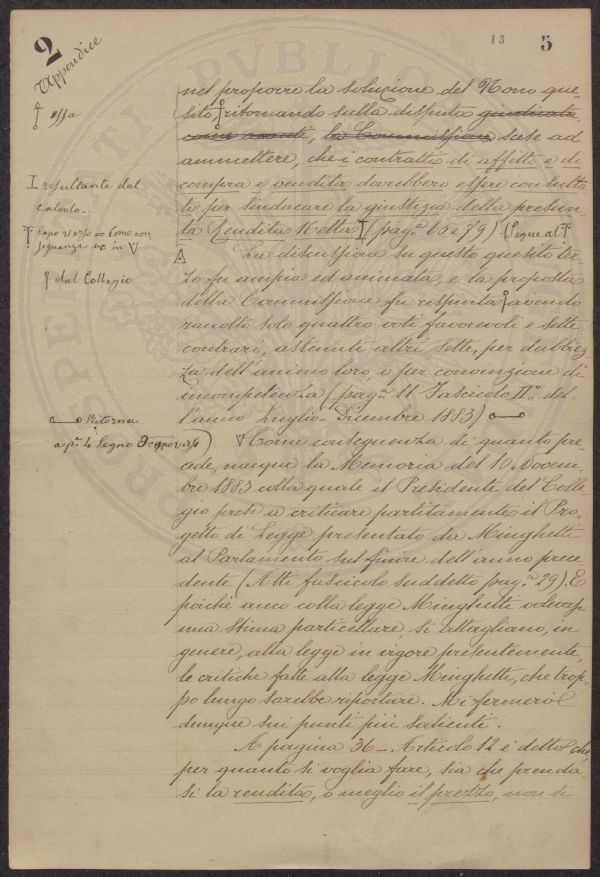 2
Appendice
13
5
nel proporre la soluzione del Nono que-
sito, ritornando sulla disputa
, la Commissione scese ad
essa
ammettere, che i contratti di affitto e di
compra e vendita dovrebbero essere consulta
ti per sindacare la giustizia della presun-
ta Rendita Netta I (pag.e 65 e 79) (Segue al
I resultante dal
calcolo.
Capo verso = Come con
seguenza ec in V
La discussione su questo quesito ter
zo fu ampia ed animata, e la proposta
della Commissione fu respinta avendo
dal Collegio
raccolto solo quattro voti favorevoli e sette
contrari, astenuti altri sette, per dubbiez
za dell'animo loro, o per convinzione di
incompetenza (pag.a 11 Fascicolo II.o del-
l'anno Luglio-Dicembre 1883)
Ritorna
a p.a 4 Segno Capoverso)
V Come conseguenza di quanto pre-
cede, nacque la Memoria del 10 Novem-
bre 1883 colla quale il Presidente del Colle
gio prese a criticare partitamente il Pro-
getto di Legge presentato da Minghetti
al Parlamento sul finire dell'anno prece-
dente (Atti fascicolo suddetto pag.a 29). E
poichè anco colla legge Minghetti volevasi
una stima particellare, si attagliano, in
genere, alla legge in vigore presentemente,
le critiche fatte alla legge Minghetti, che trop-
po lungo sarebbe riportare. Mi fermerò
dunque sui punti più salienti.
A pagina 36 - Articolo 12 è detto che,
per quanto si voglia fare, sia che prenda-
si la rendita, o meglio il prezzo, non si